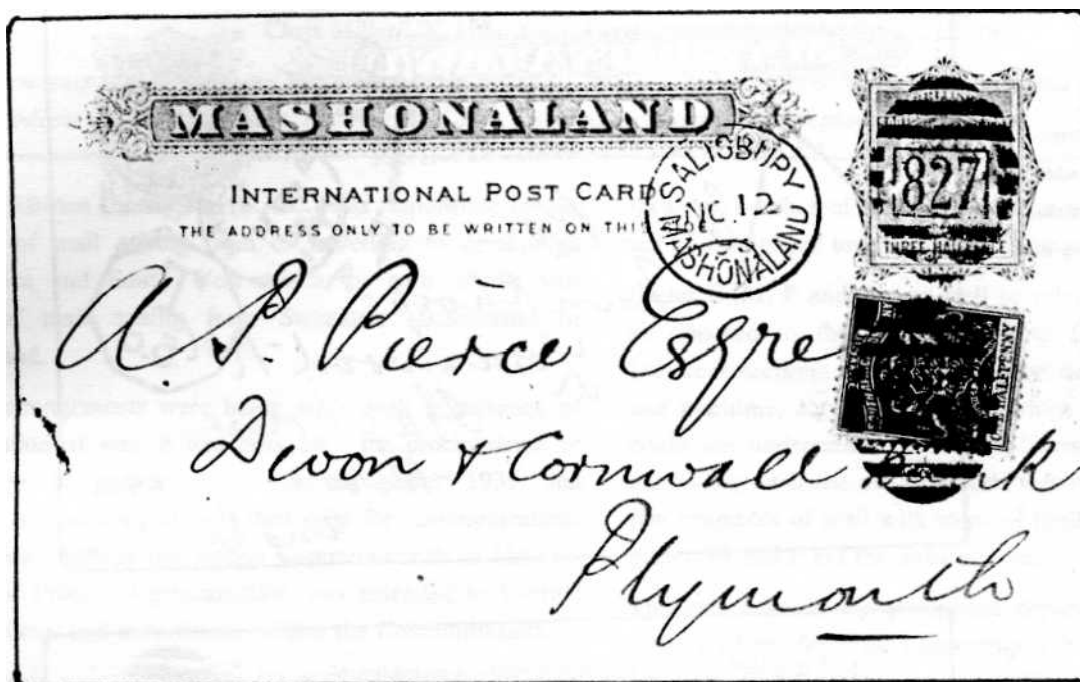 MASHONALAND
INTERNATIONAL POST CARD
THE ADDRESS ONLY TO BE WRITTEN ON THIS
SALISBURY
MASHONALAND
827
THREE HALFPENCE
HALFPENNY
A. P. Pierce Esqre
Devon & Cornwall Bank
Plymouth